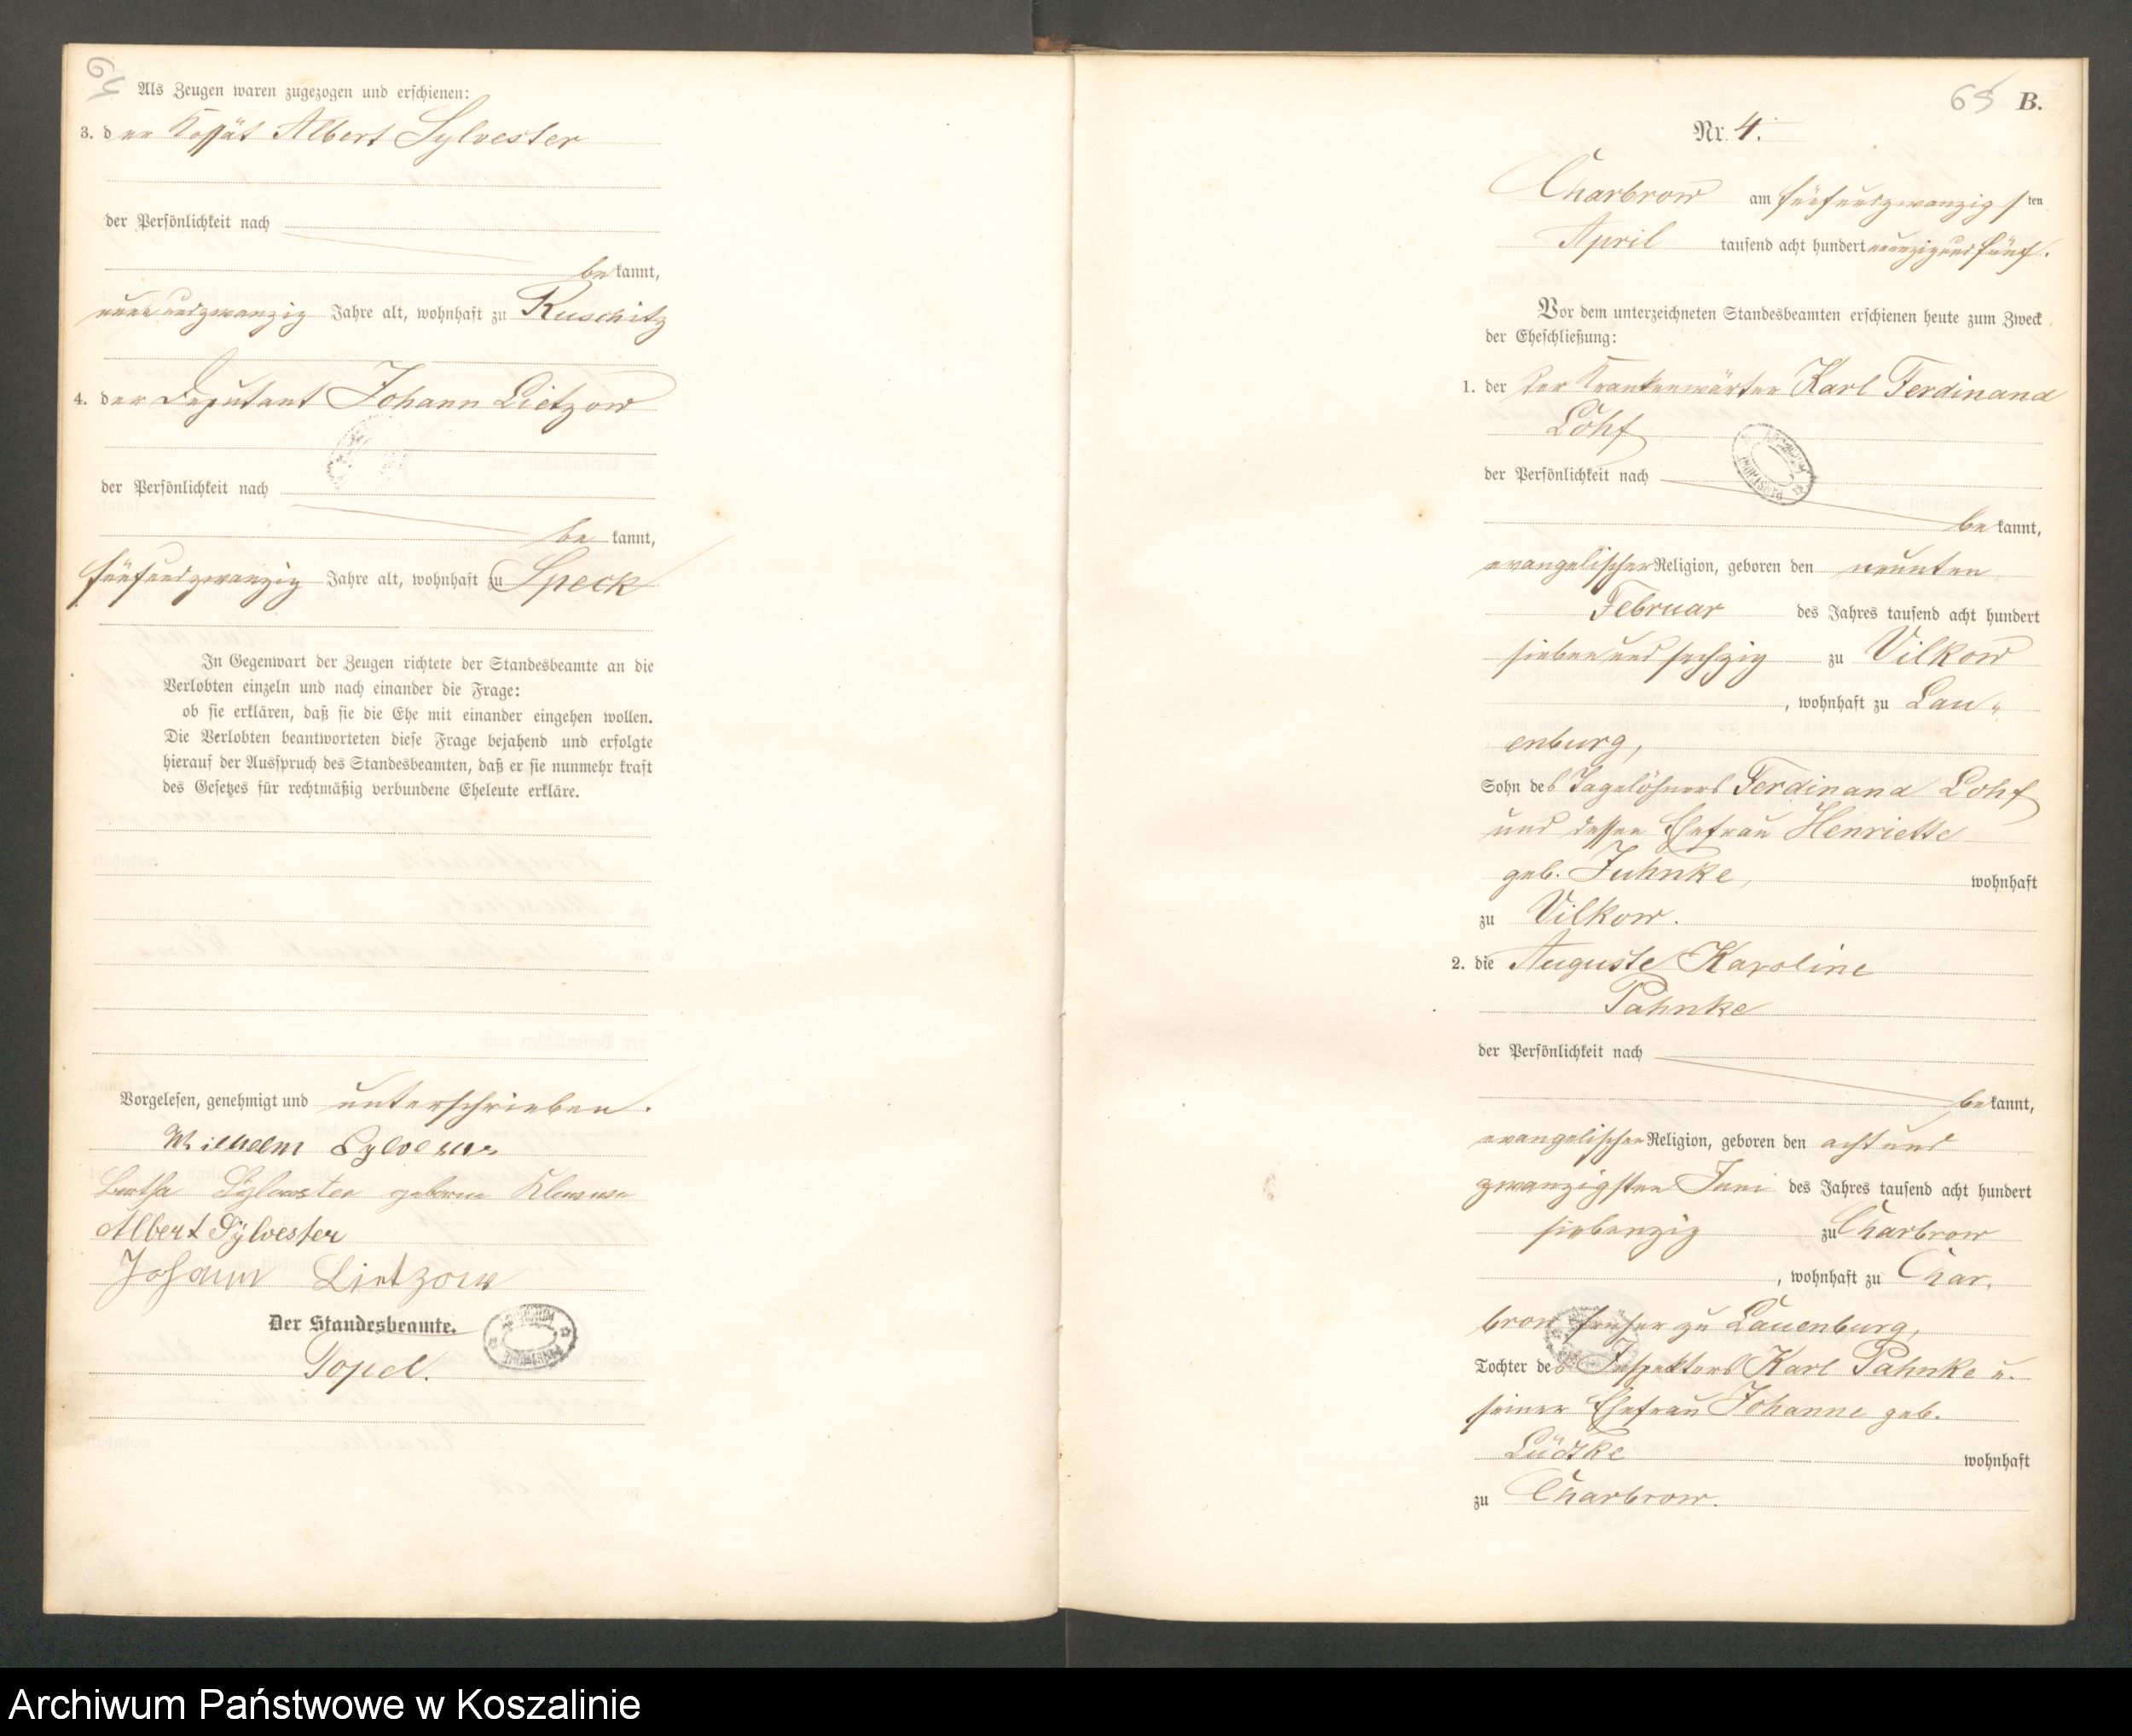 64
Als Zeugen waren zugezogen und erschienen:
3. der Kossät Albert Sylvester
der Persönlichkeit nach
bekannt,
neunundzwanzig Jahre alt, wohnhaft zu Ruschitz
4. der Deputant Johann Lietzow
der Persönlichkeit nach
bekannt,
fünfundzwanzig Jahre alt, wohnhaft zu Speck
In Gegenwart der Zeugen richtete der Standesbeamte an die
Verlobten einzeln und nach einander die Frage:
ob sie erklären, daß sie die Ehe mit einander eingehen wollen.
Die Verlobten beantworteten diese Frage bejahend und erfolgte
hierauf der Ausspruch des Standesbeamten, daß er sie nunmehr kraft
des Gesetzes für rechtmäßig verbundene Eheleute erkläre.
Vorgelesen, genehmigt und unterschrieben.
Wilhelm Sylvester
Bertha Sylvester geborne
Albert Sylvester
Johann Lietzow
Der Standesbeamte.
Topel.
65 B.
Nr. 4.
Charbrow am fünfundzwanzigsten
April tausend acht hundert neunzig und fünf.
Vor dem unterzeichneten Standesbeamten erschienen heute zum Zweck
der Eheschließung:
1. der der Krankenwärter Karl Ferdinand
Lohf
der Persönlichkeit nach
bekannt,
evangelischer Religion, geboren den neunten
Februar des Jahres tausend acht hundert
sieben und sechzig zu Vilkow
, wohnhaft zu Lau-
enburg,
Sohn des Tagelöhners Ferdinand Lohf
und dessen Ehefrau Henriette
geb. Juhnke, wohnhaft
zu Vilkow.
2. die Auguste Karoline
Pahnke
der Persönlichkeit nach
bekannt,
evangelischer Religion, geboren den acht und
zwanzigsten Juni des Jahres tausend acht hundert
siebenzig zu Charbrow
, wohnhaft zu Char-
brow früher zu Lauenburg,
Tochter des Inspektors Karl Pahnke u.
seiner Ehefrau Johanne geb.
Lüdtke wohnhaft
zu Charbrow.
Archiwum Państwowe w Koszalinie